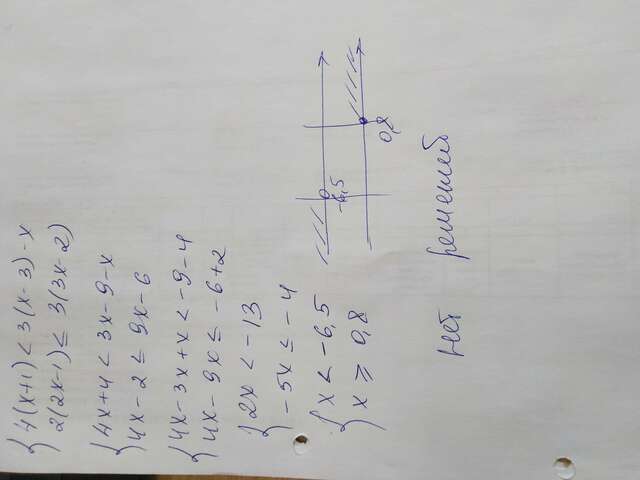 4(x+1) < 3(x-3)-x
2(2x-1) ≤ 3(3x-2)
4x+4 < 3x-9-x
4x-2 ≤ 9x-6
4x-3x+x < -9-4
4x-9x ≤ -6+2
2x < -13
-5x ≤ -4
x < -6,5
x ≥ 0,8
-6,5
0,8
нет решений